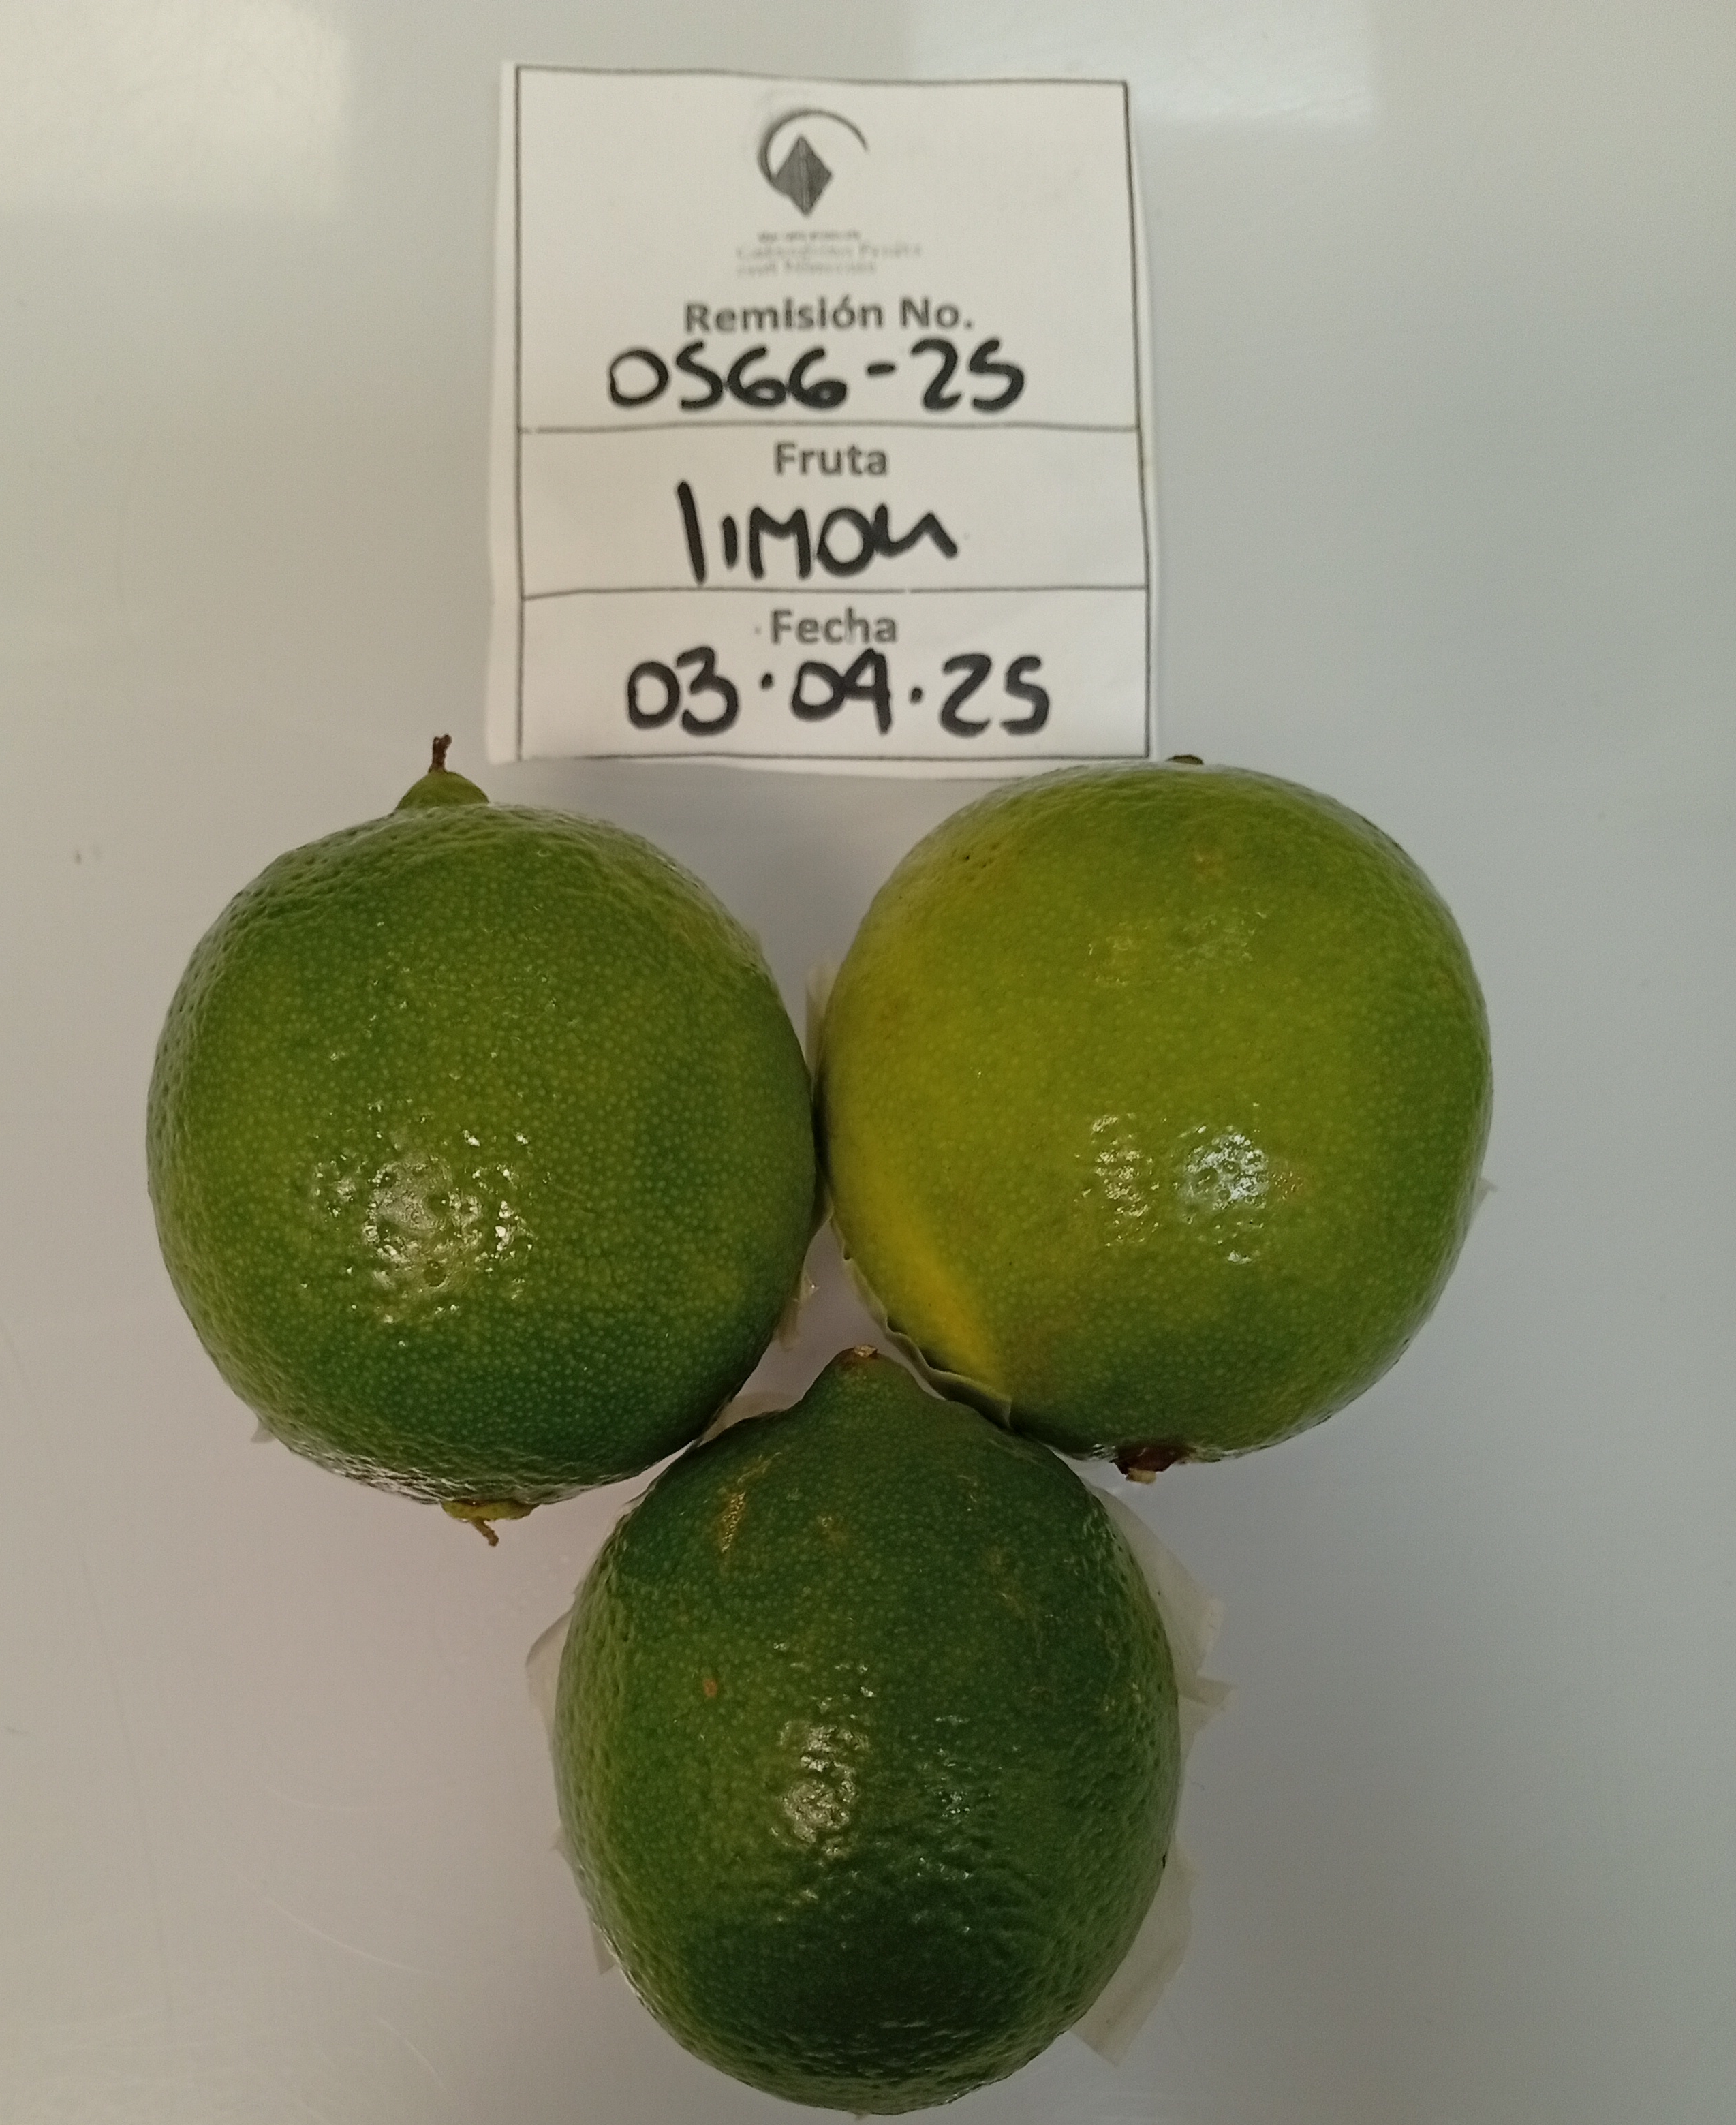 Remisión No.
0566-25
Fruta
limon
Fecha
03.04.25